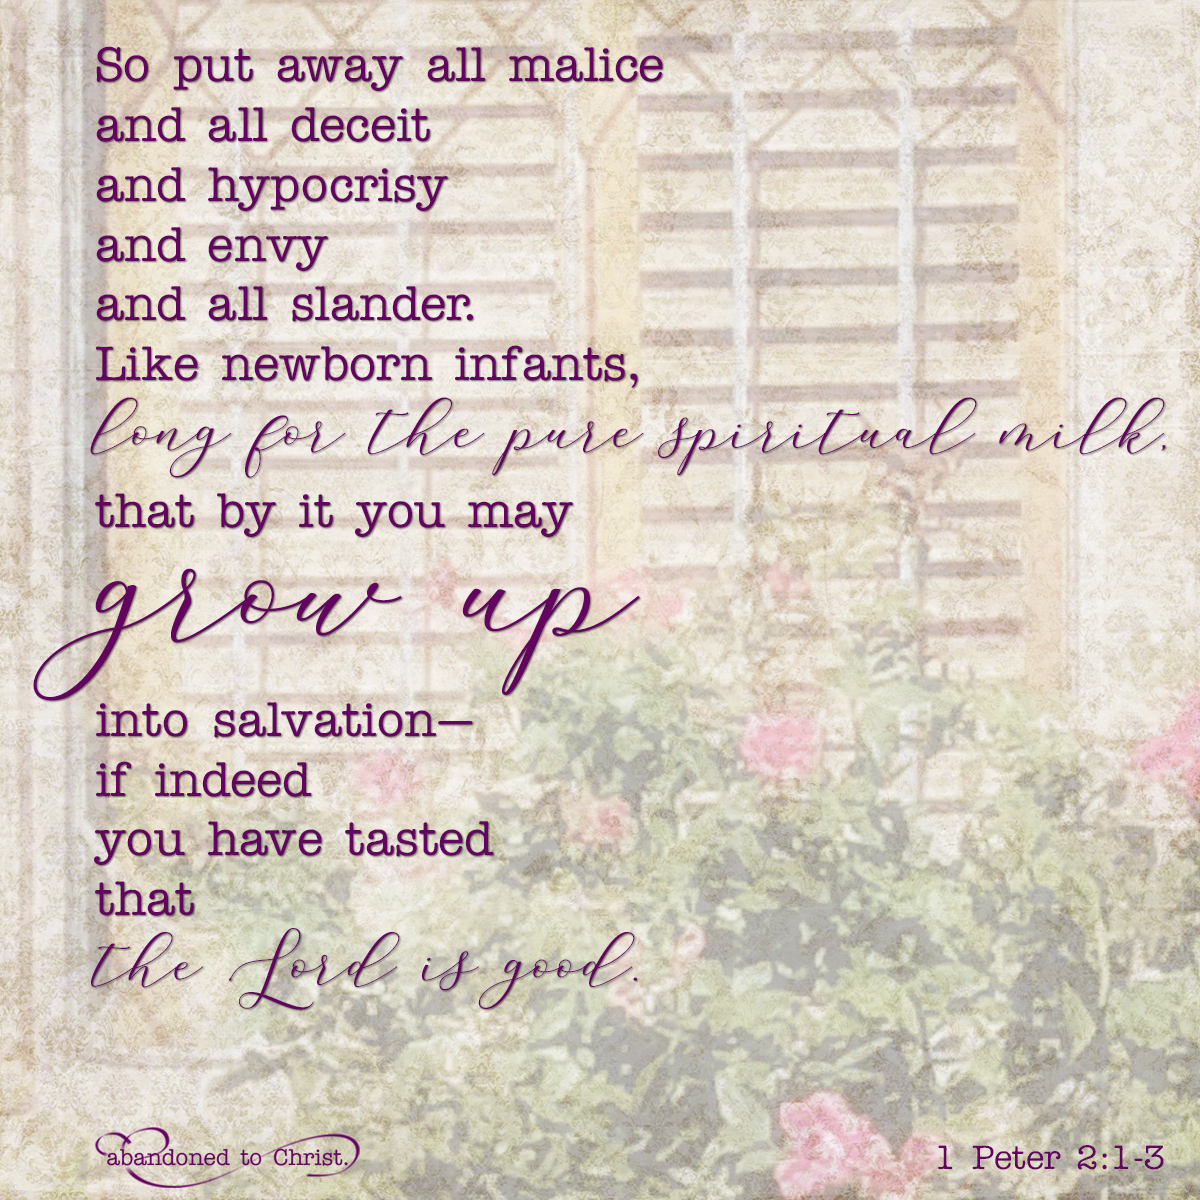 So put away all malice
and all deceit
and hypocrisy
and envy
and all slander.
Like newborn infants,
long for the pure spiritual milk,
that by it you may
grow up
into salvation—
if indeed
you have tasted
that
the Lord is good.
abandoned to Christ.
1 Peter 2:1-3